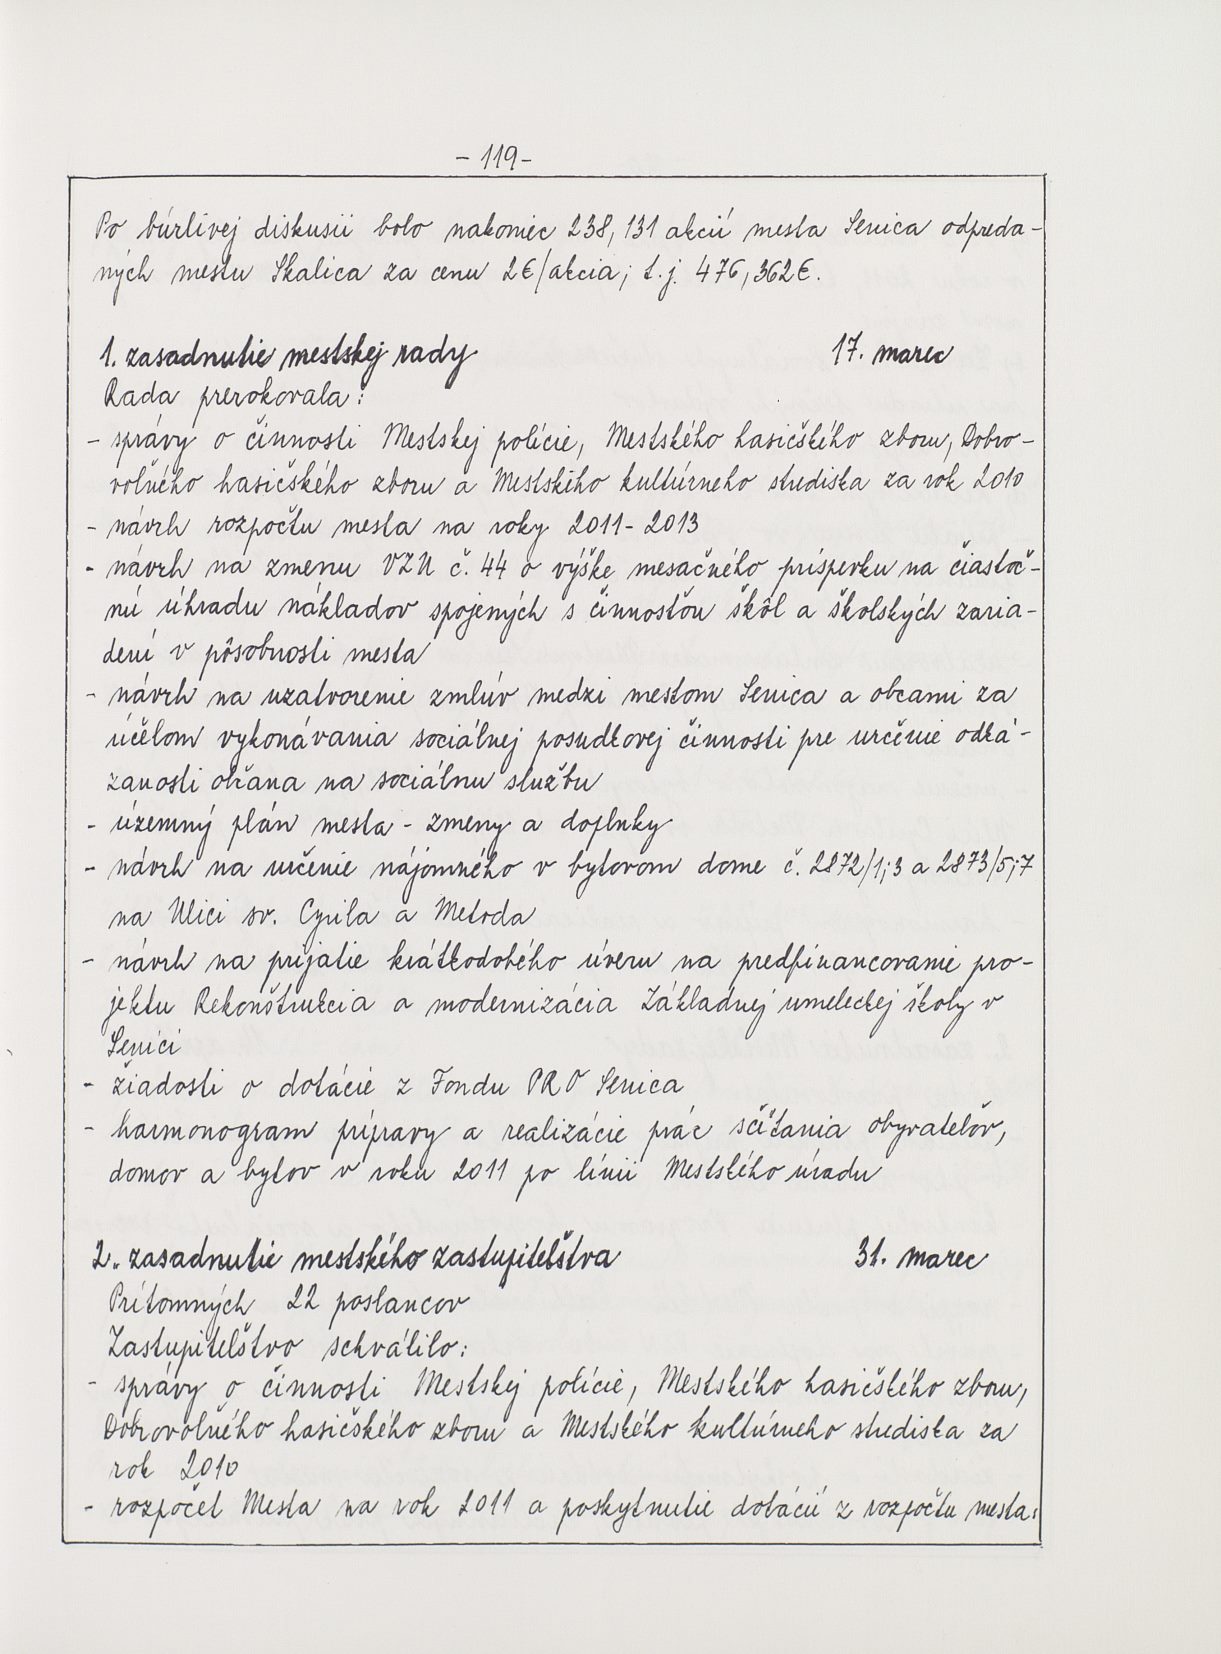 - 119-
Po búrlivej diskusii bolo nakoniec 238,131 akcií mesta Senica odpreda-
ných mestu Skalica za cenu 2€/akcia; t.j. 476,362€.
1. zasadnutie mestskej rady 17. marec
Rada prerokovala:
- správy o činnosti Mestskej polície, Mestského hasičského zboru, Dobro-
voľného hasičského zboru a Mestského kultúrneho strediska za rok 2010
- návrh rozpočtu mesta na roky 2011- 2013
- návrh na zmenu VZN č. 44 o výške mesačného príspevku na čiastoč-
nú úhradu nákladov spojených s činnosťou škôl a školských zaria-
dení v pôsobnosti mesta
- návrh na uzatvorenie zmlúv medzi mestom Senica a obcami za
účelom vykonávania sociálnej posudkovej činnosti pre určenie odká-
zanosti občana na sociálnu službu
- územný plán mesta - zmeny a doplnky
- návrh na určenie nájomného v bytovom dome č. 2872/1;3 a 2873/5;7
na Ulici sv. Cyrila a Metoda
- návrh na prijatie krátkodobého úveru na predfinancovanie pro-
jektu Rekonštrukcia a modernizácia Základnej umeleckej školy v
Senici
- žiadosti o dotácie z Fondu PRO Senica
- harmonogram prípravy a realizácie prác sčítania obyvateľov,
domov a bytov v roku 2011 po línii Mestského úradu
2. zasadnutie mestského zastupiteľstva 31. marec
Prítomných 22 poslancov
Zastupiteľstvo schválilo:
- správy o činnosti Mestskej polície, Mestského hasičského zboru,
Dobrovoľného hasičského zboru a Mestského kultúrneho strediska za
rok 2010
- rozpočet Mesta na rok 2011 a poskytnutie dotácií z rozpočtu mesta: